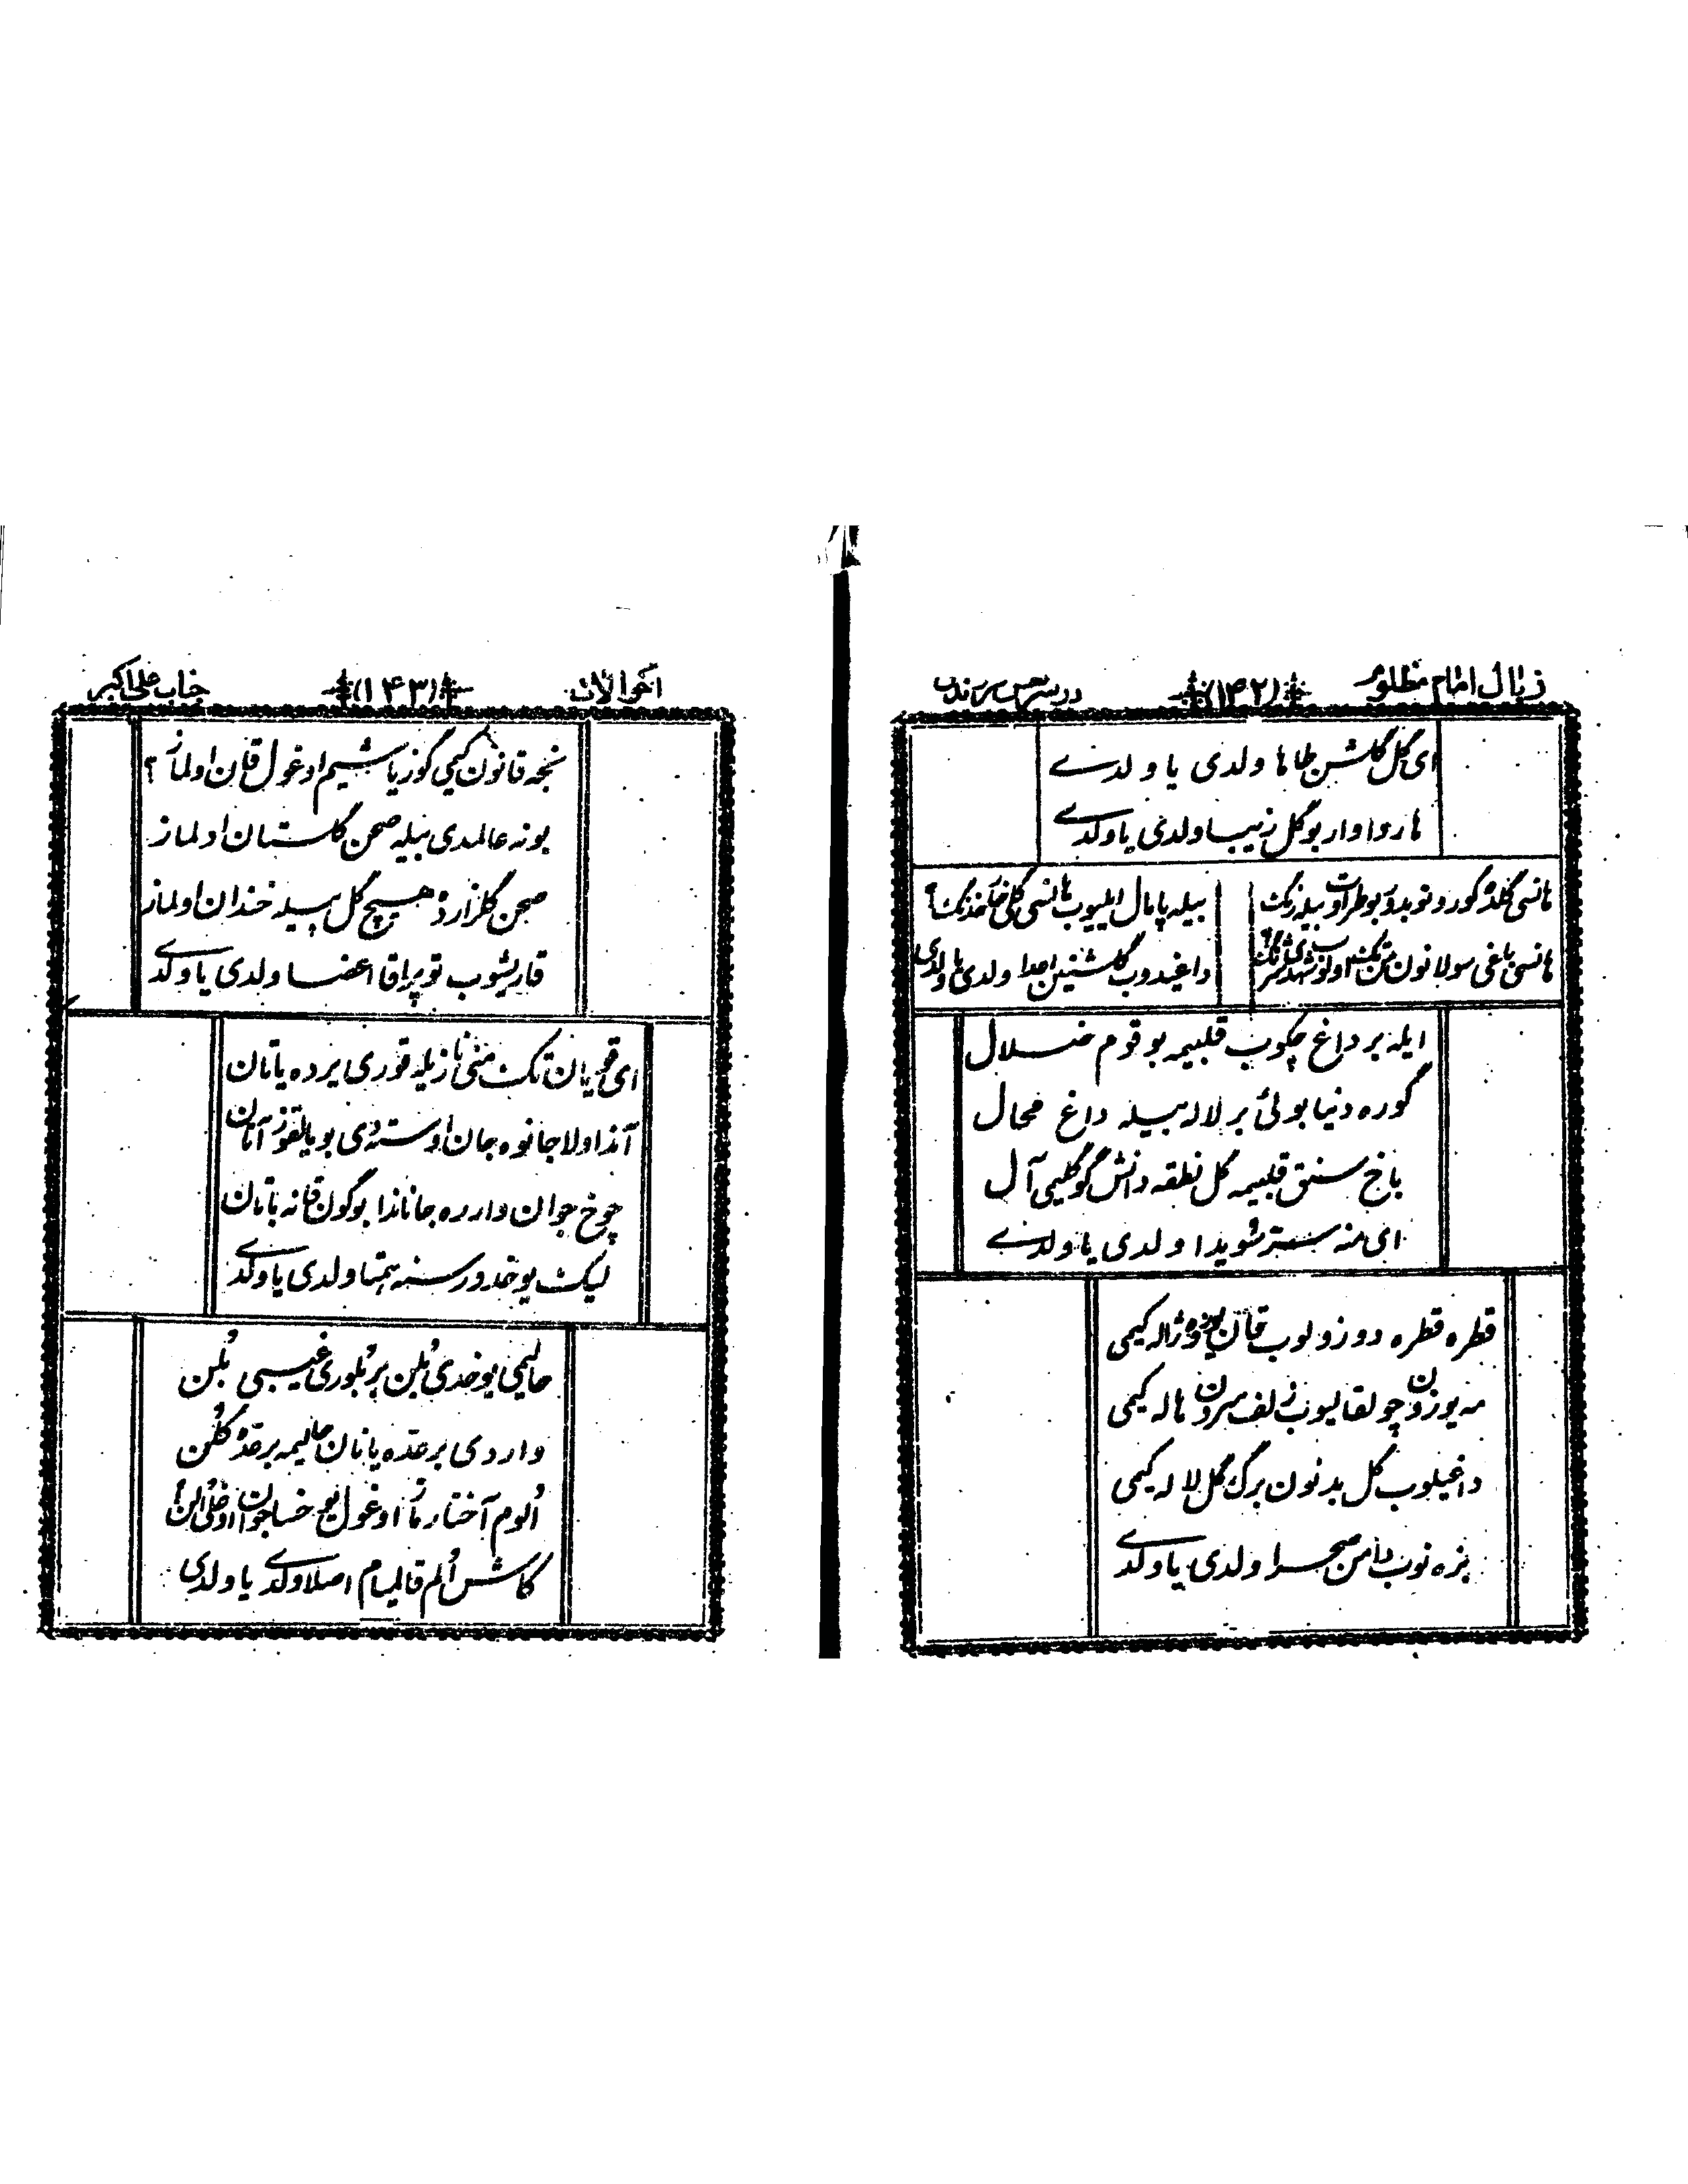 زبال امام مظلوم (۱۴۲) در سر
ای گل گلشن طاها ولدی یا ولدی
هاروا وار بو گل زیبا ولدی یا ولدی
هانسی گلده گورونوبدو بو طراوت بیله رنگ
بیله پامال ایلیوب هانسی گلی خار خدنگ؟
هانسی باغی سولانون
داغیدوب گلشنین اعدا ولدی یا ولدی
ایله بر داغ چکوب قلبیمه بو قوم ضلال
گوره دنیا بولئ بر لاله بیله داغ محال
باخ سنق قلبیمه گل نطقه دانش گوگلیمی آل
ای منه سستر شویدا ولدی یا ولدی
قطره قطره دوزولوب قان یوزوه ژاله کیمی
مه یوزون چولقالیوب زلف سردن هاله کیمی
داغیلوب گل بدنون برگ گل لاله کیمی
بزه نوب دامن صحرا ولدی یا ولدی
احوالات (۱۴۳) جناب علی اکبر
نجه قانون کیمی گوز یاشیم اوغول قان اولماز؟
بونه عالمدی بیله صحن گلستان اولماز
صحن گلزارده هیچ گل بیله خندان اولماز
قاریشوب توپراقا اعضا ولدی یا ولدی
ای قویان تک منی نازیله قوری یرده یاتان
آندا ولا جانوه جان اوسته دی بو یالقوز آتان
چوخ جوان وار ره جاناندا بو گون قانه باتان
لیک یوخدور سنه همتا ولدی یا ولدی
حالیمی یوخدی بُلن بر بُلوری غیبی بُلن
واردی بر عده یانان حالیمه بر عده گلن
اُلوم آختارماز اوغول یوخسا جوان اوغلی اُلن
کاش اُلم قالمیام اصلا ولدی یا ولدی